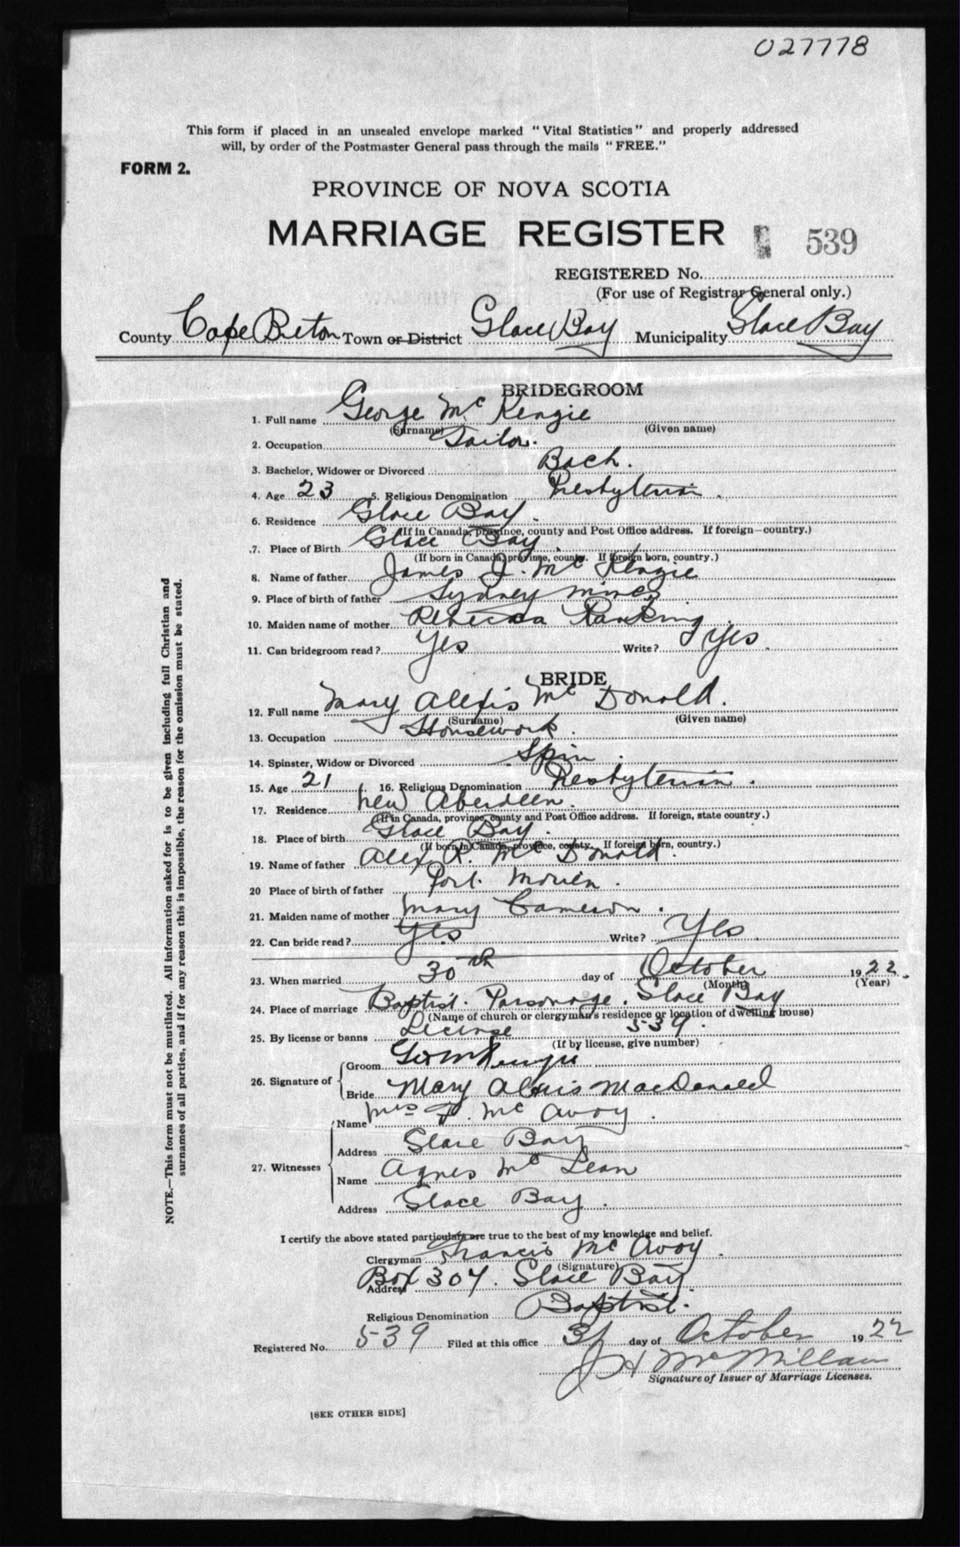 027778
This form if placed in an unsealed envelope marked "Vital Statistics" and properly addressed
will, by order of the Postmaster General pass through the mails "FREE."
FORM 2.
PROVINCE OF NOVA SCOTIA
MARRIAGE REGISTER 539
REGISTERED No.
(For use of Registrar General only.)
County Cape Breton Town or District Glace Bay Municipality Glace Bay
BRIDEGROOM
1. Full name George McKenzie
(Surname) (Given name)
2. Occupation Tailor.
3. Bachelor, Widower or Divorced Bach.
4. Age 23 5. Religious Denomination Presbyterian.
6. Residence Glace Bay.
(If in Canada, province, county and Post Office address. If foreign—country.)
7. Place of Birth Glace Bay.
(If born in Canada, province, county. If foreign born, country.)
8. Name of father James J. McKenzie
9. Place of birth of father Sydney Mines
10. Maiden name of mother Rebecca Ranking.
11. Can bridegroom read? Yes Write? Yes.
BRIDE
12. Full name Mary Alexis McDonald.
(Surname) (Given name)
13. Occupation Housework.
14. Spinster, Widow or Divorced Spin.
15. Age 21 16. Religious Denomination Presbyterian.
17. Residence New Aberdeen.
(If in Canada, province, county and Post Office address. If foreign, state country.)
18. Place of birth Glace Bay.
(If born in Canada, province, county. If foreign born, country.)
19. Name of father Alex. R. McDonald.
20 Place of birth of father Port Morien.
21. Maiden name of mother Mary Cameron.
22. Can bride read? Yes Write? Yes.
23. When married 30th day of October 1922.
(Month) (Year)
24. Place of marriage Baptist Parsonage. Glace Bay
(Name of church or clergyman's residence or location of dwelling house)
25. By license or banns License 539.
(If by license, give number)
26. Signature of Groom Geo McKenzie
Bride Mary Alexis MacDonald
27. Witnesses Name Mrs F. McAvoy.
Address Glace Bay
Name Agnes McLean
Address Glace Bay.
I certify the above stated particulars are true to the best of my knowledge and belief.
Clergyman Francis McAvoy.
(Signature)
Address Box 307. Glace Bay
Religious Denomination Baptist.
Registered No. 539 Filed at this office 31 day of October 1922
J H McMillan
Signature of Issuer of Marriage Licenses.
[SEE OTHER SIDE]
NOTE.—This form must not be mutilated. All information asked for is to be given including full Christian and
surnames of all parties, and if for any reason this is impossible, the reason for the omission must be stated.